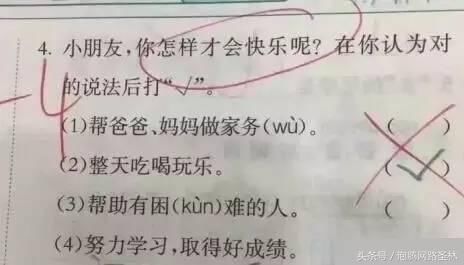 4. 小朋友,你怎样才会快乐呢? 在你认为对
的说法后打“√”。
-4
(1)帮爸爸、妈妈做家务(wù)。 ( )
(2)整天吃喝玩乐。 (√)
(3)帮助有困(kùn)难的人。 ( )
(4)努力学习,取得好成绩。